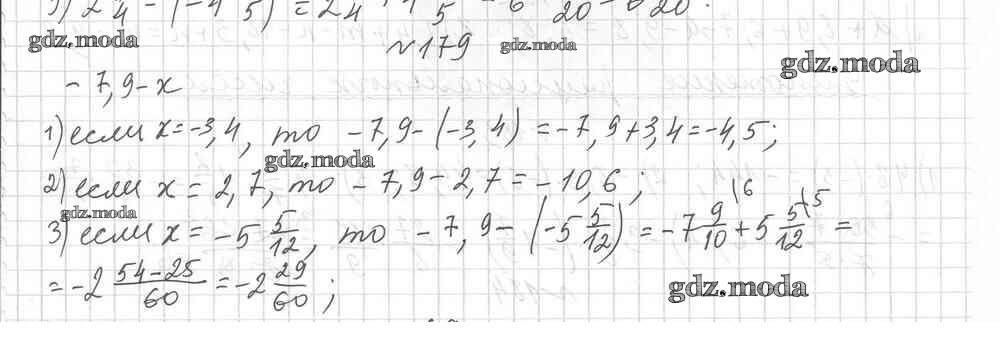 gdz.moda № 179 gdz.moda
gdz.moda
- 7,9 - x
1) если x = -3,4, то -7,9 - (-3,4) = -7,9 + 3,4 = -4,5;
gdz.moda
2) если x = 2,7, то -7,9 - 2,7 = -10,6;
gdz.moda
3) если x = -5 5/12, то -7,9 - (-5 5/12) = -7 9/10 \6 + 5 5/12 \5 =
= -2 54-25/60 = -2 29/60;
gdz.moda